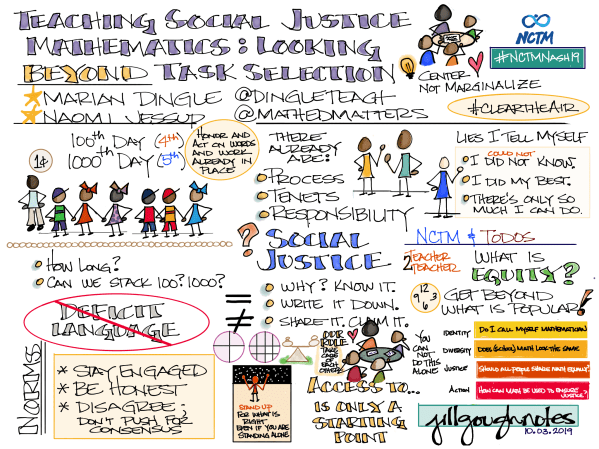 TEACHING SOCIAL JUSTICE
MATHEMATICS: LOOKING
BEYOND TASK SELECTION
MARIAN DINGLE @DINGLETEACH
NAOMI JESSUP @MATHEDMATTERS
CENTER
NOT MARGINALIZE
NCTM
#NCTMNASH19
#CLEARTHEAIR
100th DAY (4th)
1000th DAY (5th)
1¢
HONOR AND
ACT ON WORDS
AND WORK
ALREADY IN
PLACE
THERE
ALREADY
ARE:
PROCESS
TENETS
RESPONSIBILITY
LIES I TELL MYSELF
COULD NOT
I DID NOT KNOW.
I DID MY BEST.
THERE'S ONLY SO
MUCH I CAN DO.
HOW LONG?
CAN WE STACK 100? 1000?
? SOCIAL
JUSTICE
WHY? KNOW IT.
WRITE IT DOWN.
SHARE IT. CLAIM IT.
NCTM & TODOS
TEACHER
2
TEACHER
WHAT IS
EQUITY?
12
9 3
6
GET BEYOND
WHAT IS POPULAR!
DEFICIT
LANGUAGE
=
≠
NORMS
* STAY ENGAGED
* BE HONEST
* DISAGREE;
DON'T PUSH FOR
CONSENSUS
STAND UP
FOR WHAT IS
RIGHT
EVEN IF YOU ARE
STANDING ALONE
OUR
RULE:
TAKE
CARE
OF
EACH
OTHER
YOU
CAN
NOT
DO
THIS
ALONE
ACCESS TO...
IS ONLY A
STARTING
POINT
IDENTITY DO I CALL MYSELF MATHEMATICIAN
DIVERSITY DOES (SCHOOL) MATH LOOK THE SAME
JUSTICE SHOULD ALL PEOPLE SHARE MATH EQUALLY?
ACTION HOW CAN MATH BE USED TO ENSURE
JUSTICE?
jillgoughnotes
10.03.2019